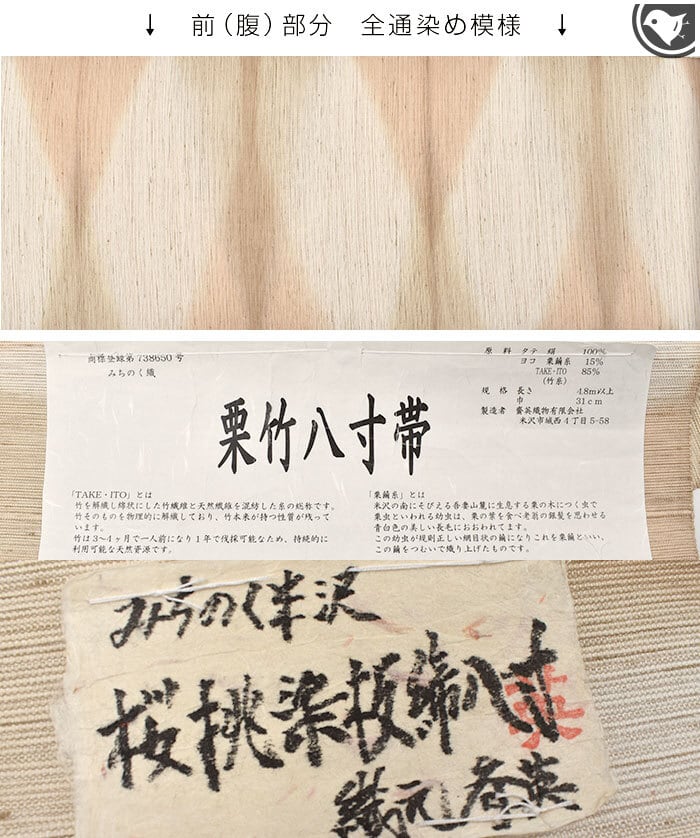 ↓ 前(腹)部分 全通染め模様 ↓
商標登録第738650号
みちのく織
栗竹八寸帯
原料 タテ 絹 100%
ヨコ 栗繭糸 15%
TAKE・ITO 85%
(竹糸)
規格 長さ 4.8m以上
巾 31cm
製造者 齋英織物有限会社
米沢市城西4丁目5-58
「TAKE・ITO」とは
竹を解繊し綿状にした竹繊維と天然繊維を混紡した糸の総称です。
竹そのものを物理的に解繊しており、竹本来が持つ性質が残って
います。
竹は3~4ヶ月で一人前になり1年で伐採可能なため、持続的に
利用可能な天然資源です。
「栗繭糸」とは
米沢の南にそびえる吾妻山麓に生息する栗の木につく虫で
栗虫といわれる幼虫は、栗の葉を食べ老翁の銀髪を思わせる
青白色の美しい長毛におおわれてます。
この幼虫が規則正しい網目状の繭になりこれを栗繭といい、
この繭をつむいで織り上げたものです。
みちのく半沢
桜桃染板締八寸
織元 斉英